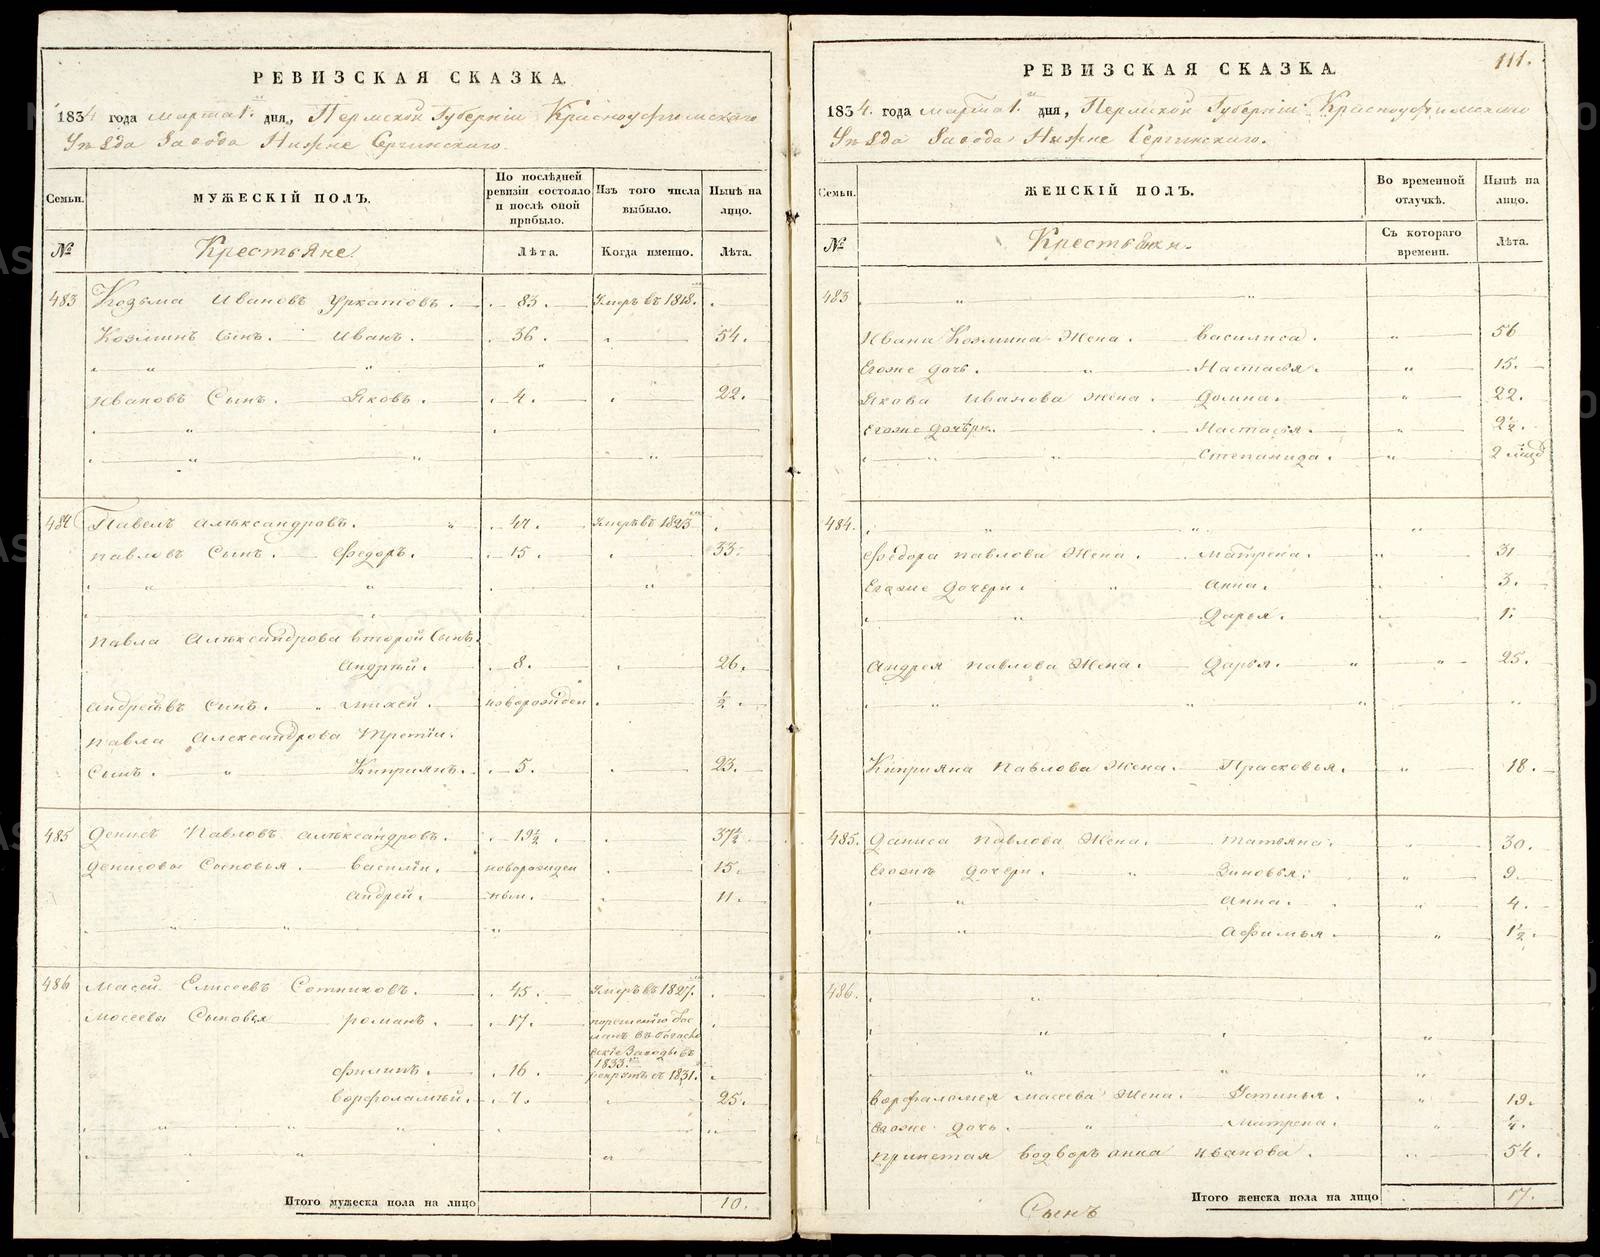 РЕВИЗСКАЯ СКАЗКА.
1834 года марта 1. дня, Пермской Губернiи Красноуфимскаго
Уѣзда Завода Нижне Сергинскаго.
Семьи.
МУЖЕСКIЙ ПОЛЪ.
По послѣдней ревизiи состояло и послѣ оной прибыло.
Изъ того числа выбыло.
Нынѣ на лицо.
№
Крестьяне
Лѣта.
Когда именно.
Лѣта.
483 Козьма Ивановъ Уркатовъ. 83. Умеръ въ 1818.
Козминъ Сынъ. Иванъ. 36. 54.
Ивановъ Сынъ. Яковъ. 4. 22.
484 Павелъ Алѣксандровъ. 47. Умеръ въ 1823
Павловъ Сынъ. Ѳедоръ. 15. 33.
Павла Алѣксандрова второй Сынъ.
Андрѣй. 8. 26.
Андреѣвъ Сынъ. Михей. новорожден ½.
Павла Александрова Третiй.
Сынъ. Киприянъ. 5. 23.
485 Денисъ Павловъ Алѣксандровъ. 19½. 37½
Денисовы Сыновья. Василiй. новорожден 15.
Андрей. ным. 11.
486 Масей Елисеевъ Сотниковъ. 45. Умеръ въ 1827.
Мосеевы Сыновья романъ. 17. порешенiю
въ
Заводы въ
1833.
Филипъ. 16. рекрутъ въ 1831.
Ворфоламѣй. 7. 25.
Итого мужеска пола на лицо 10.
111.
РЕВИЗСКАЯ СКАЗКА.
1834. года марта 1. дня, Пермской Губернiи Красноуфимскаго
Уѣзда Завода Нижне Сергинскаго.
Семьи.
ЖЕНСКIЙ ПОЛЪ.
Во временной отлучкѣ.
Нынѣ на лицо.
№
Крестьянки.
Съ котораго времени.
Лѣта.
483
Ивана Козмина Жена. Василиса. 56
Егоже дочь. Настасья. 15.
Якова Иванова жена. Домна. 22.
Егоже дочѣри. Настасья. 2½.
Степанида. 2
484.
Ѳедора Павлова Жена. Матрена. 31
Егоже дочери. Анна. 3.
Дарья. 1.
Андрея Павлова Жена. Дарья. 25.
Киприяна Павлова Жена. Прасковья. 18.
485. Даниса Павлова Жена. Татьяна. 30.
Егожъ дочери. Зиновья. 9.
Анна. 4.
Афимья. 1½.
486.
Ворфаломея Масеева Жена. Устинья. 19.
Егоже дочь. Матрена. ½.
принетая водворъ анна Иванова. 54.
Итого женска пола на лицо 17.
Сынъ